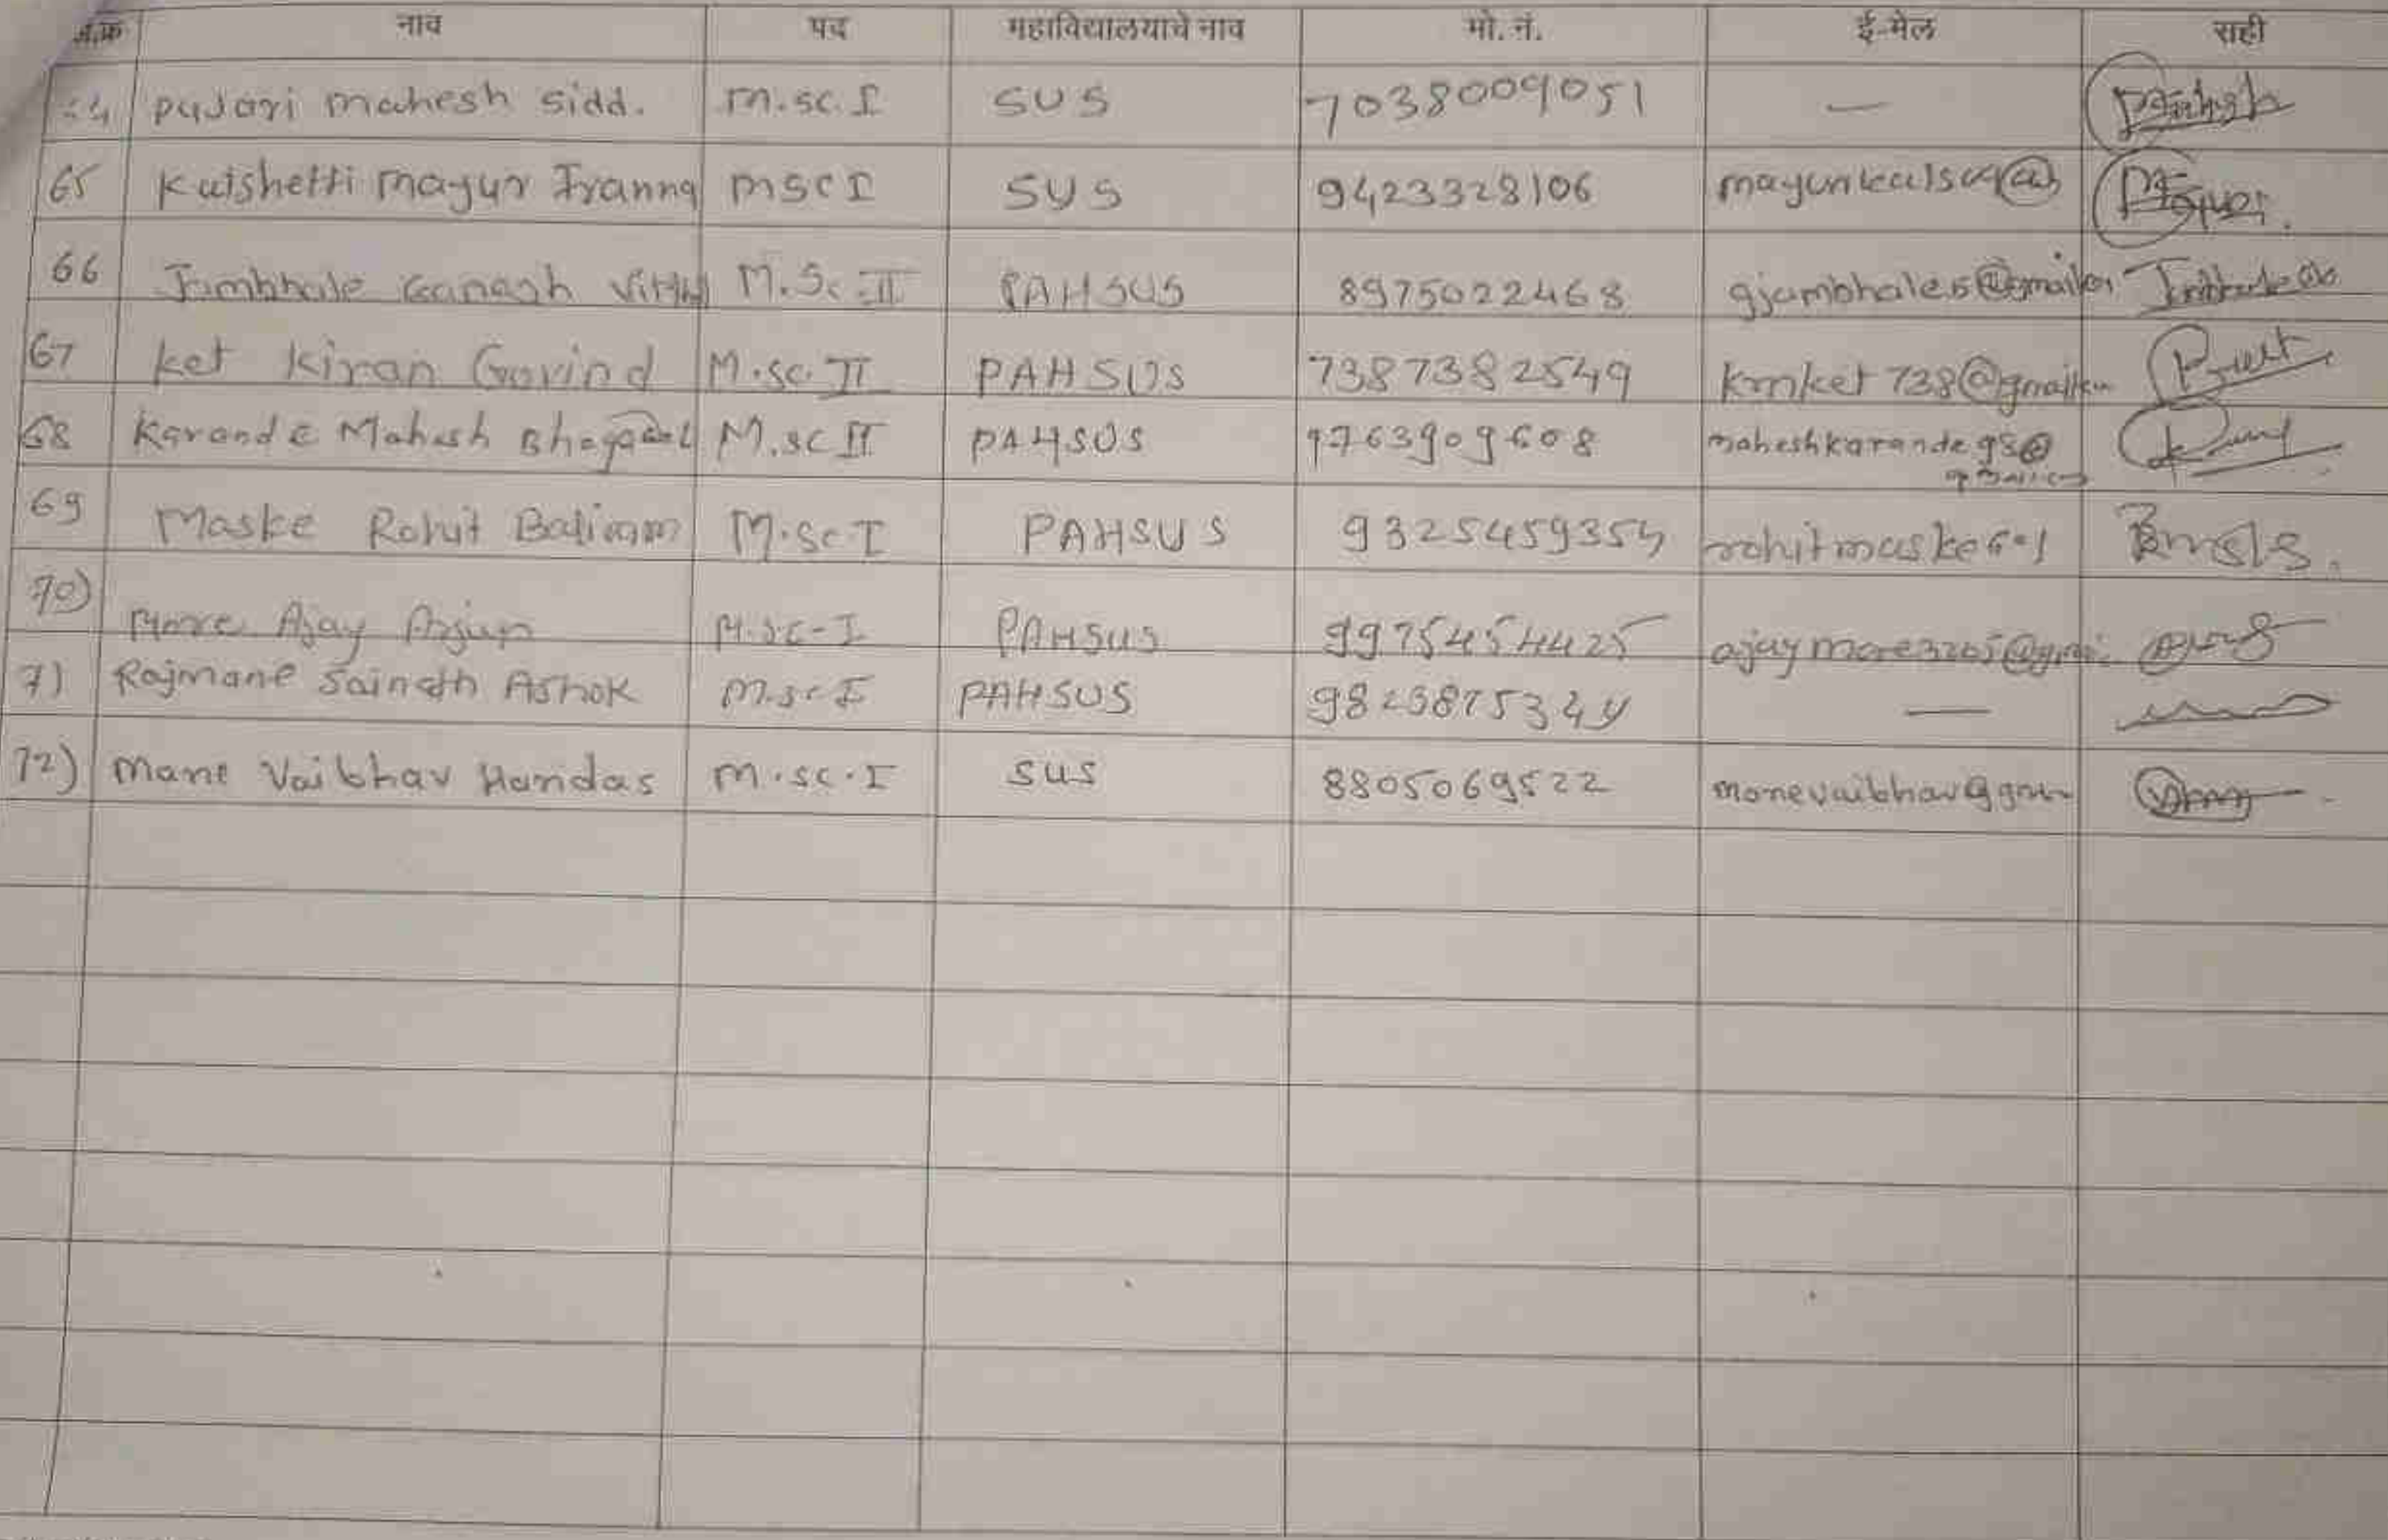 अ.क्र नाव पद महाविद्यालयाचे नाव मो. नं. ई-मेल सही
pujari mahesh sidd. M.sc.I SUS 7038009051 —
65 Kalshetti mayur Iranna MSC I SUS 9423328106
66 Jambhale Ganesh M.Sc.II PAHSUS 8975022468
67 ket Kiran Govind M.sc.II PAHSUS 7387382549 kmket738@gmail
68 Karande Mahesh M.sc II PAHSUS 9763909608 maheshkarande98@
69 Maske Rohit Baliram M.sc-I PAHSUS 9325459354 rohitmaske
70) More Ajay Arjun M.sc-I PAHSUS 9975454425
71 Rajmane Sainath Ashok M.sc I PAHSUS —
72) Mane Vaibhav Haridas M.sc.I SUS 8805069522 manevaibhav